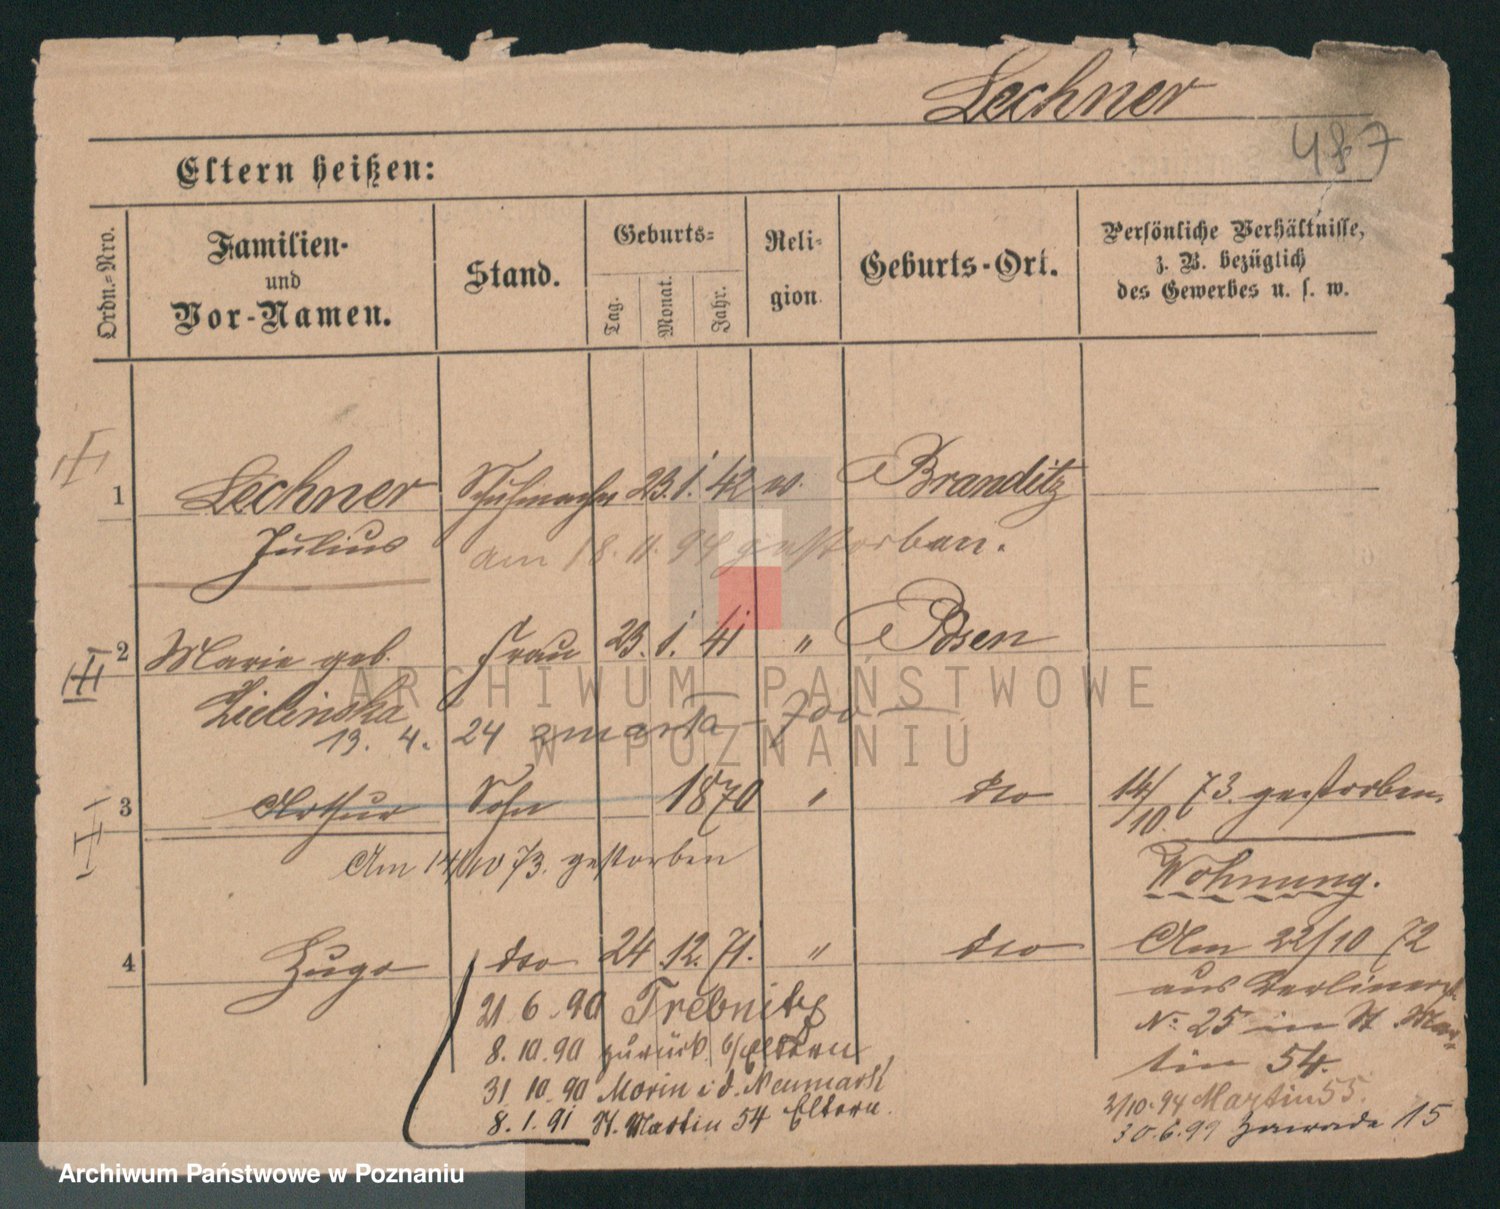 Lechner
487
Eltern heißen:
Ordn.-Nro.
Familien- und Vor-Namen.
Stand.
Geburts-
Tag.
Monat.
Jahr.
Religion.
Geburts-Ort.
Persönliche Verhältnisse, z. B. bezüglich des Gewerbes u. s. w.
1 Lechner Schuhmacher 23. 1. 42 w. Branditz
Julius am 18. 11. 94 gestorben.
2 Marie geb. Frau 23. 1. 41 " Posen
Zielinska
13. 4. 24 zmarła
3 Arthur Sohn 1870 " dto 14/10. 73. gestorben.
Am 14/10 73. gestorben
Wohnung.
4 Hugo dto 24. 12. 71. " dto Am 22/10 72
aus Berlinerst.
No. 25 in St. Mar-
tin 54.
21 6. 90 Trebnitz
8. 10. 90 zurück b/ Eltern
31 10. 90 Morin i. d. Neumark
8. 1. 91 St. Martin 54 Eltern.
2/10. 94 Martin 55.
30. 6. 99 Zawade 15
ARCHIWUM PAŃSTWOWE
W POZNANIU
Archiwum Państwowe w Poznaniu